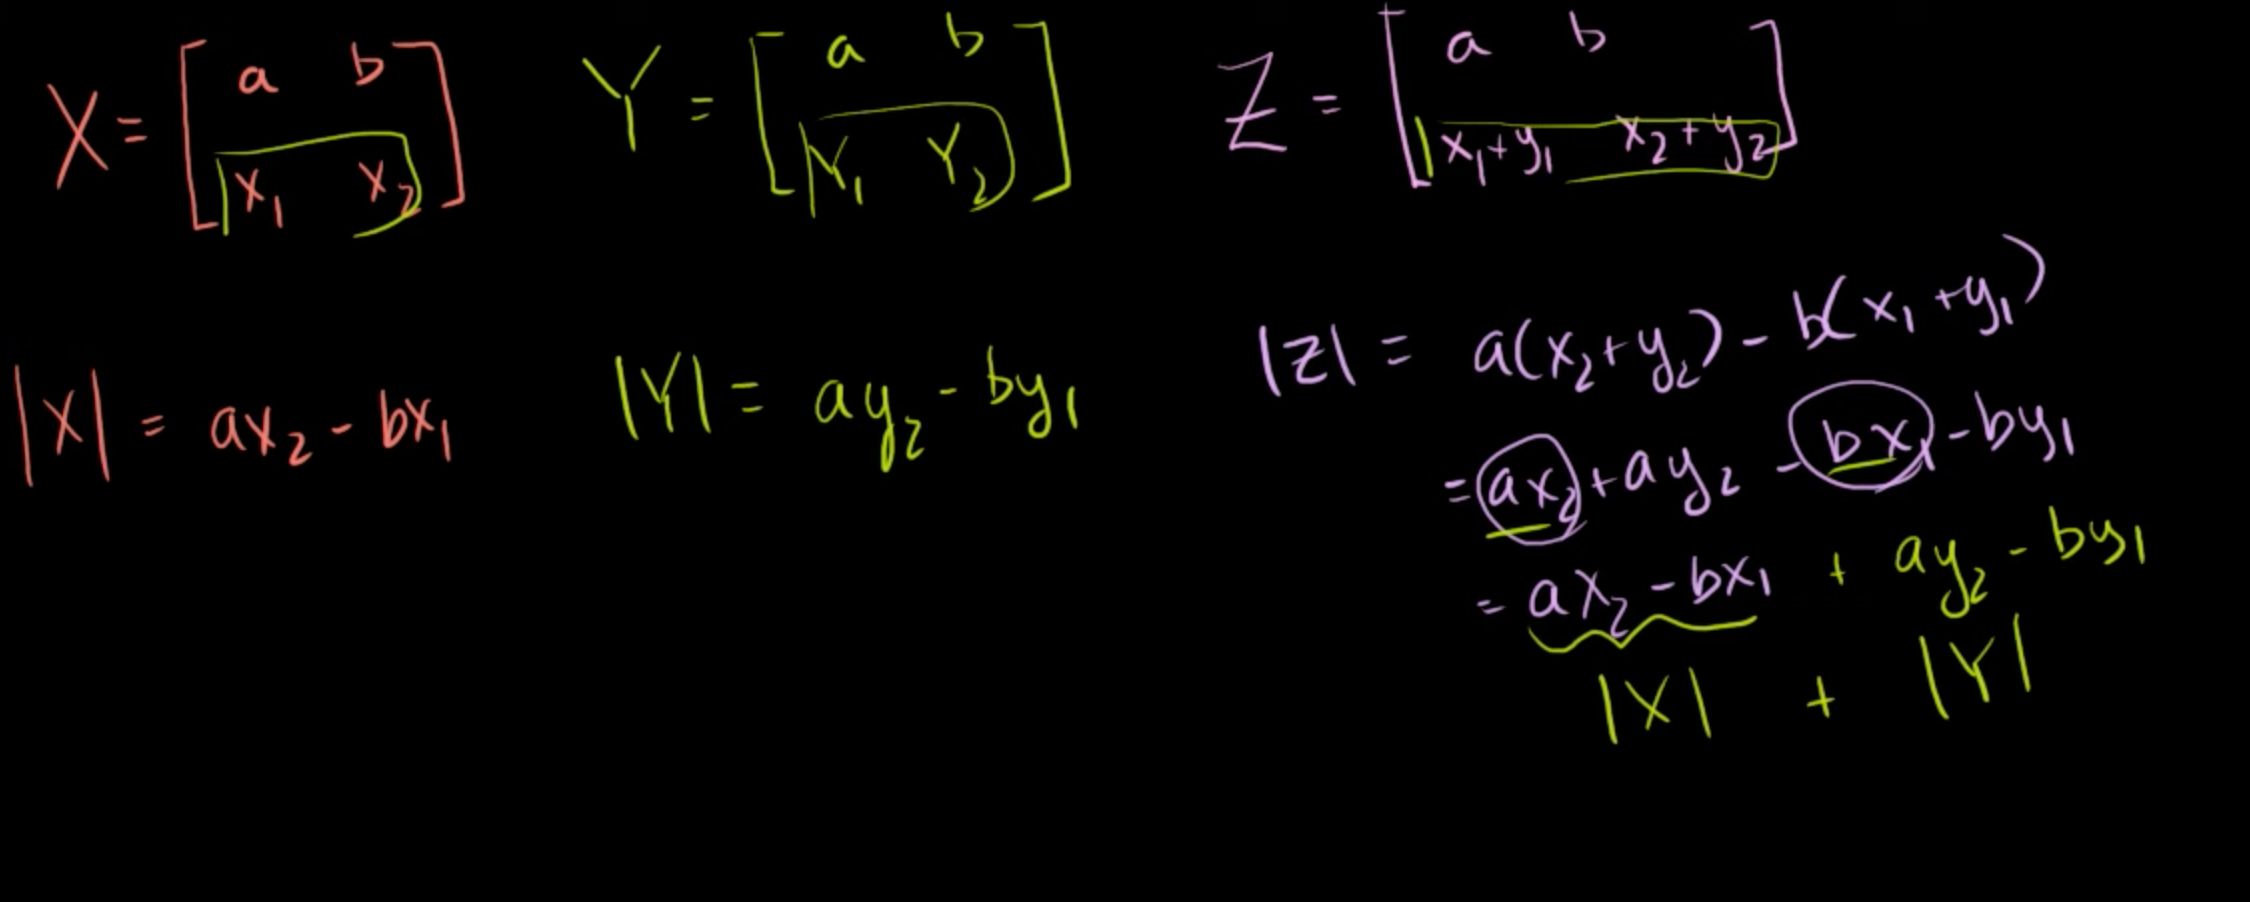 X = [ a b
x₁ x₂ ]
Y = [ a b
Y₁ Y₂ ]
Z = [ a b
x₁+y₁ x₂+y₂ ]
|X| = ax₂ - bx₁
|Y| = ay₂ - by₁
|Z| = a(x₂+y₂) - b(x₁+y₁)
= ax₂ + ay₂ - bx₁ - by₁
= ax₂ - bx₁ + ay₂ - by₁
|X| + |Y|